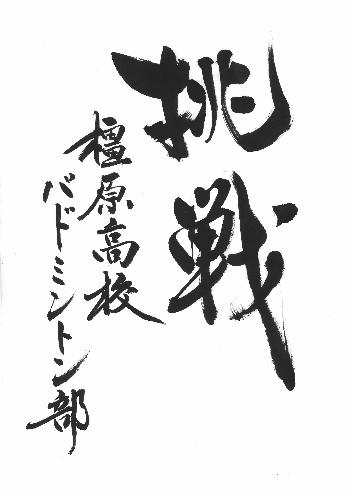 挑戦
橿原高校
バドミントン部